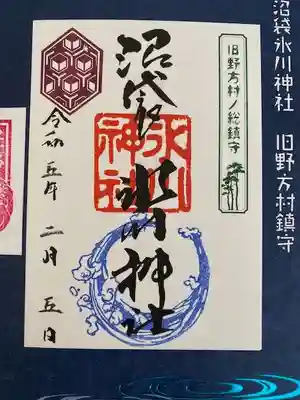 沼袋氷川神社 旧野方村鎮守
旧野方村ノ総鎮守
沼袋
氷川神社
氷川
神社
令和五年二月五日